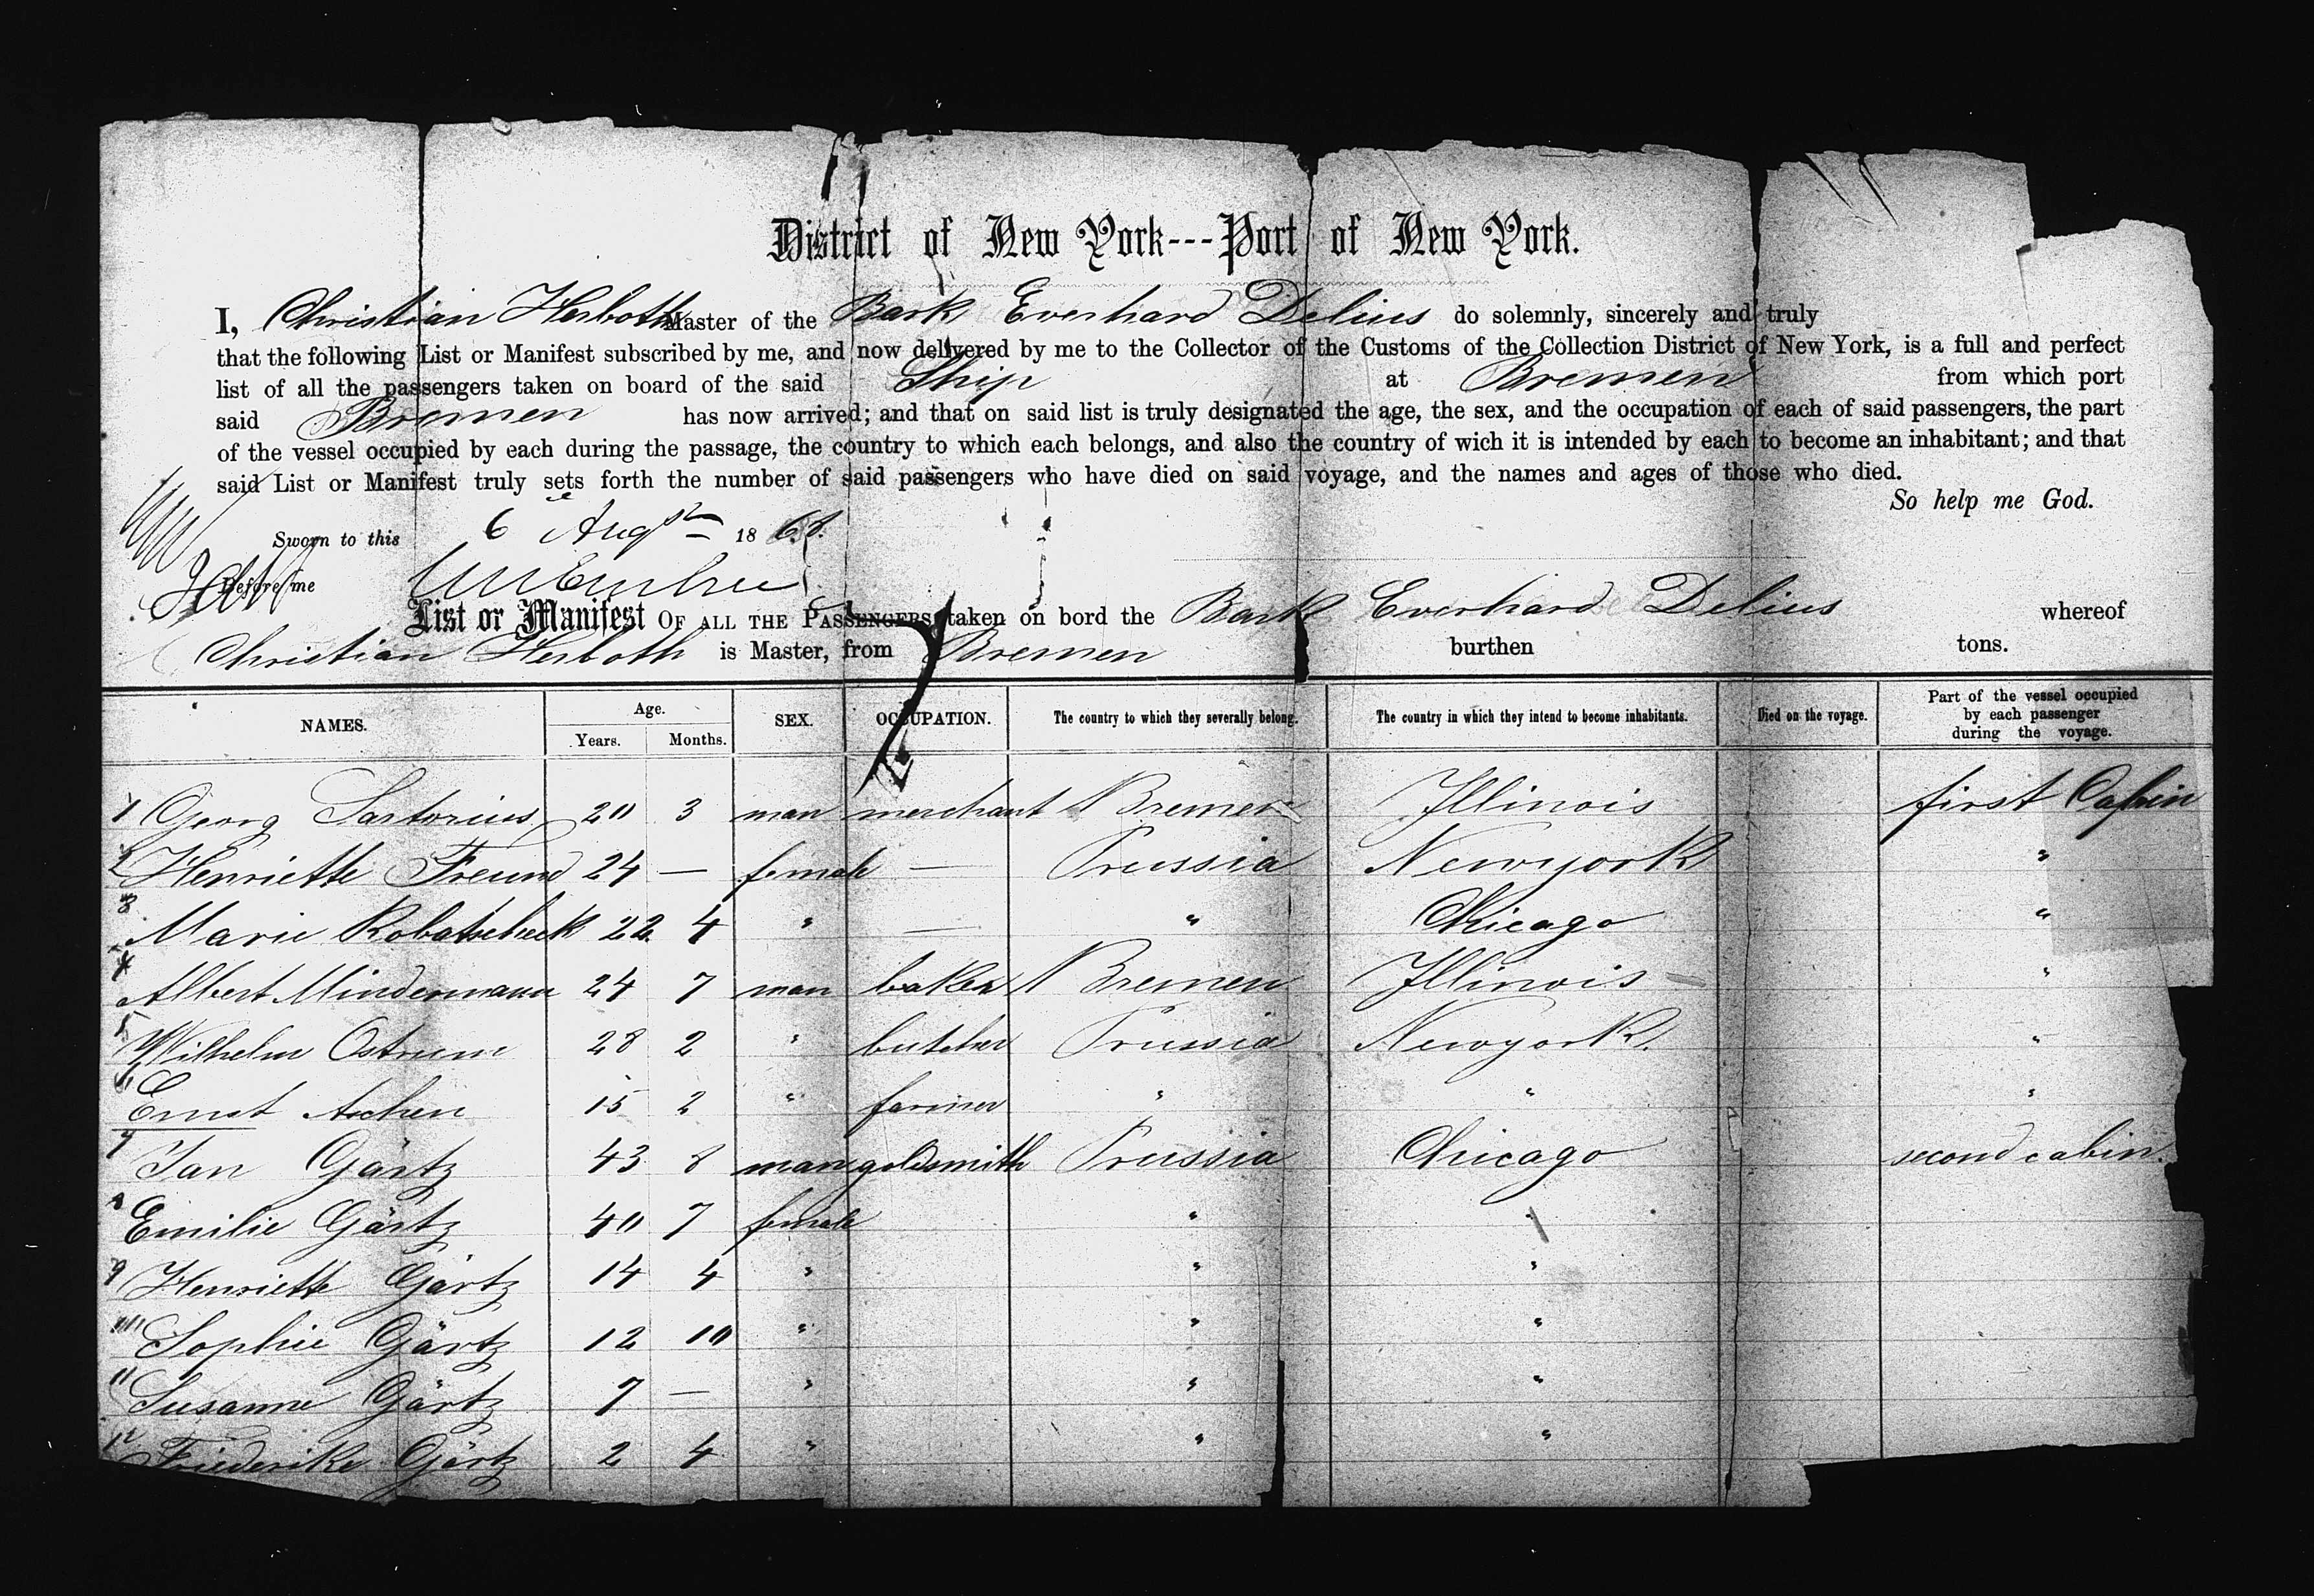 District of New York---Port of New York.
I, Christian Herboth Master of the Bark Everhard Delius do solemnly, sincerely and truly
that the following List or Manifest subscribed by me, and now delivered by me to the Collector of the Customs of the Collection District of New York, is a full and perfect
list of all the passengers taken on board of the said Ship at Bremen from which port
said Bremen has now arrived; and that on said list is truly designated the age, the sex, and the occupation of each of said passengers, the part
of the vessel occupied by each during the passage, the country to which each belongs, and also the country of wich it is intended by each to become an inhabitant; and that
said List or Manifest truly sets forth the number of said passengers who have died on said voyage, and the names and ages of those who died.
So help me God.
Sworn to this 6 Augst 1868.
Before me
List or Manifest OF ALL THE PASSENGERS taken on bord the Bark Everhard Delius whereof
Christian Herboth is Master, from Bremen burthen tons.
NAMES. Age. Years. Months. SEX. OCCUPATION. The country to which they severally belong. The country in which they intend to become inhabitants. Died on the voyage. Part of the vessel occupied by each passenger during the voyage.
1 Georg Sartorius 20 3 man merchant Bremen Illinois first Cabin
2 Henriette Freund 24 — female — Prussia Newyork "
3 Marie 22 4 " — " Chicago "
4 Albert Mindermann 24 7 man baker Bremen Illinois "
5 Wilhelm 28 2 " butcher Prussia Newyork. "
6 Ernst Achen 15 2 " farmer " " "
7 Jan Gärtz 43 8 man goldsmith Prussia Chicago second cabin.
8 Emilie Gärtz 40 7 female " "
9 Henriette Gärtz 14 4 " " "
10 Sophie Gärtz 12 10 " " "
11 Susanne Gärtz 7 — " " "
12 Friederike Gärtz 2 4 " " "